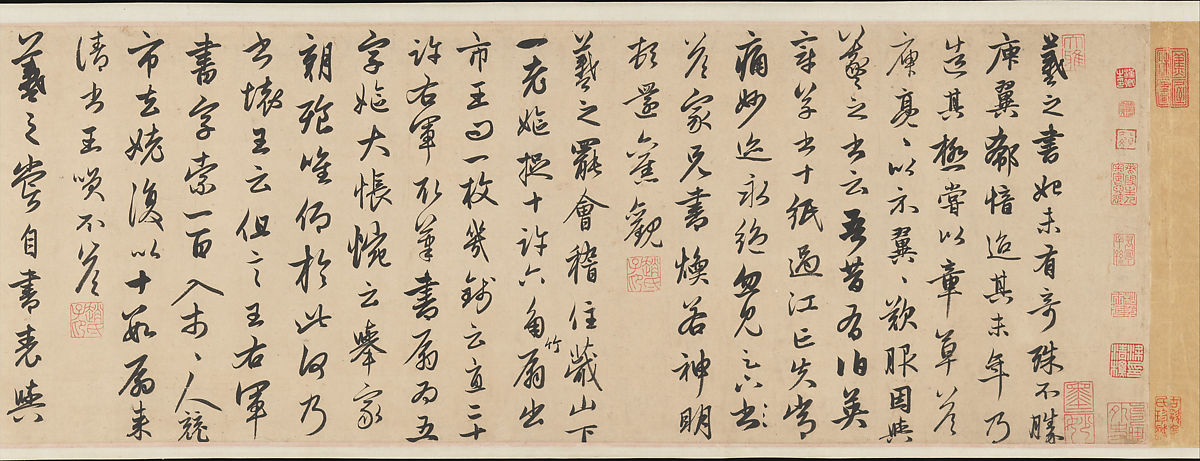 羲之書初未有奇殊不勝
庾翼郗愔迨其末年乃
造其極嘗以章草答
庾亮〻以示翼〻歎服因與
羲之書云吾昔有伯英
章草書十紙過江亡失常
痛妙迹永絕忽見足下書
答家兄書煥若神明
頓還舊觀
趙氏子印
羲之罷會稽住蕺山下
一老嫗捉十許六角竹扇出
市王問一枚幾錢云直二十
許右軍取筆書扇為五
字嫗大悵惋云舉家
朝飡唯仰於此何乃
書壞王云但言王右軍
書字索一百入市〻人競
市去嫗復以十數扇來
請書王笑不答
趙氏子印
羲之嘗自書表與